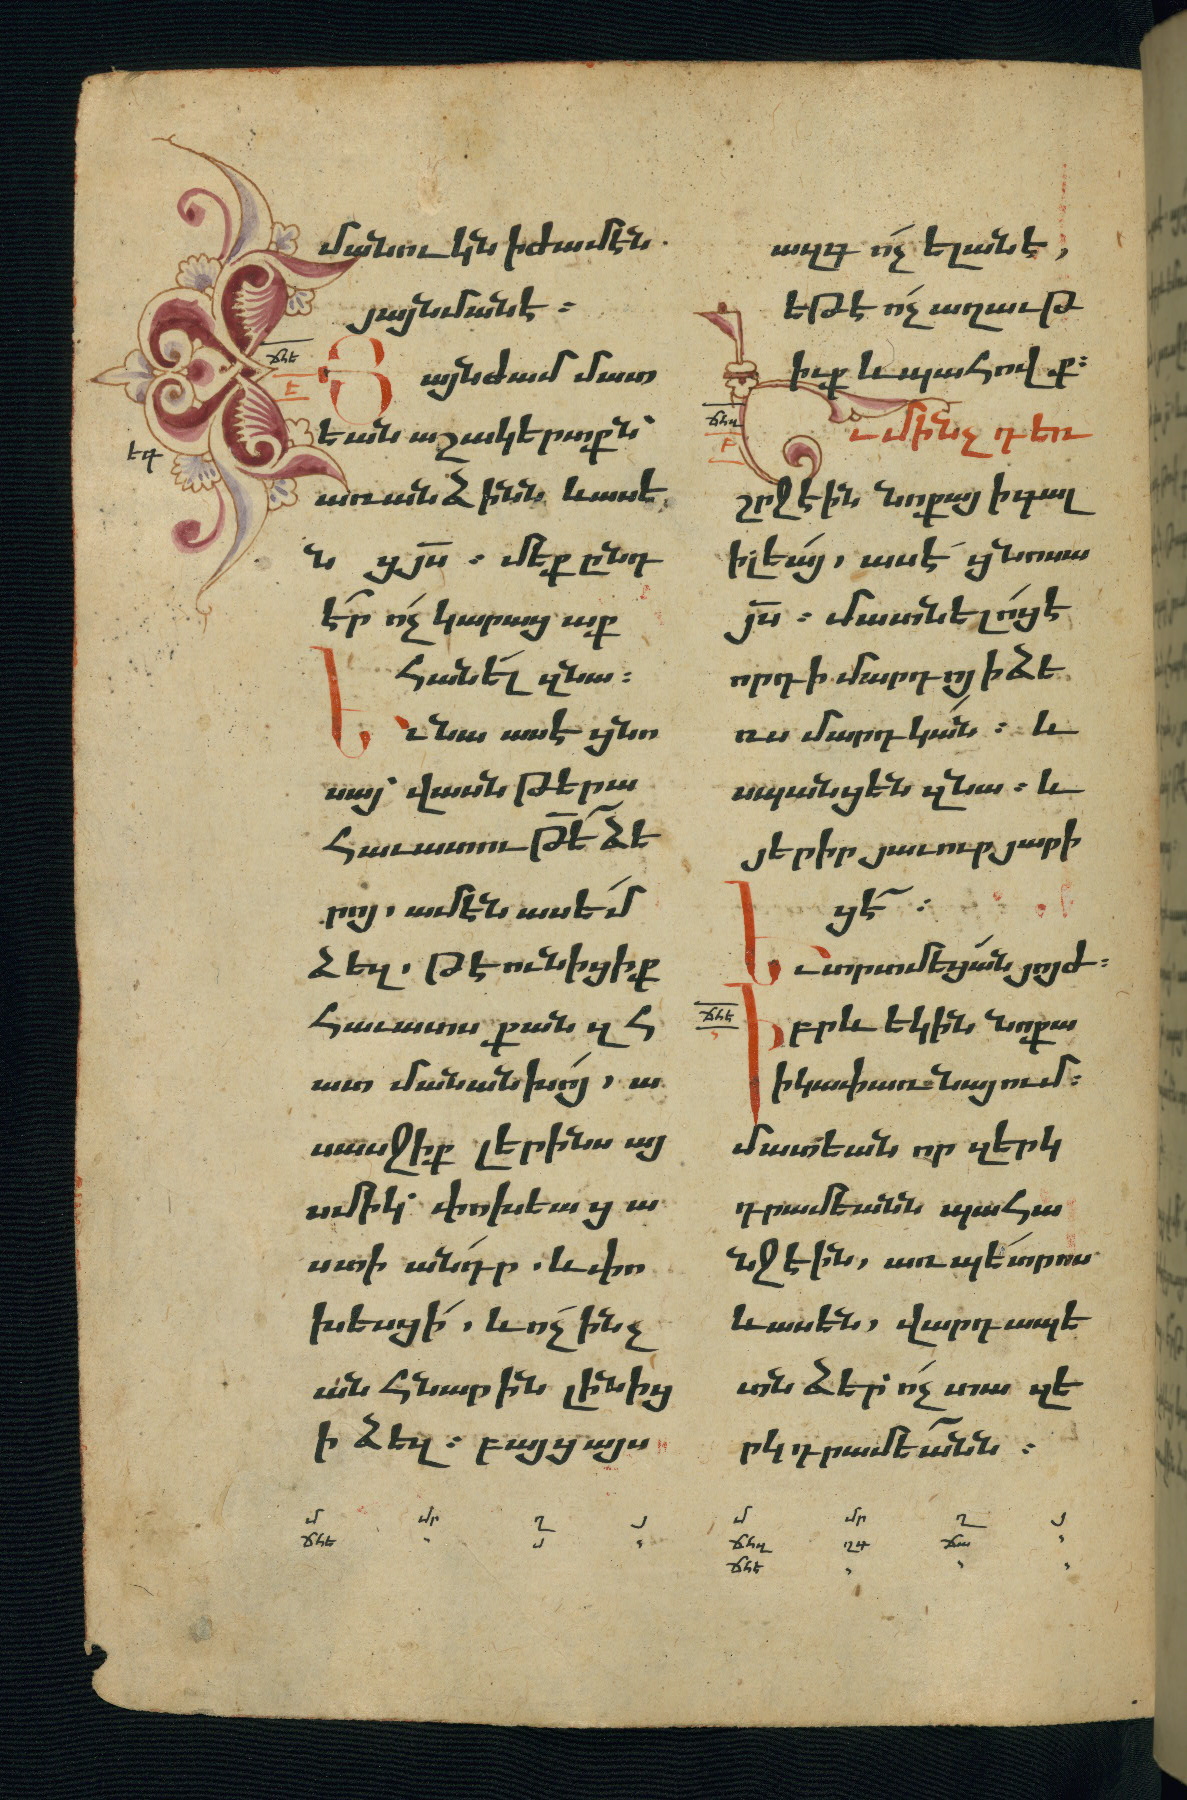 մանուկն ի ժամէն.
յայնմանէ ։
Յայնժամ մատ
եան աշակերտքն՝
առանձինն և ասե
ն ցյս ։ մեք ընդ
է՞ր ո՛չ կարացաք
հանե՛լ զնա ։
Եւ նա ասէ ցնո
սայ՝ վասն թերա
հաւատութե՞ ձե
րոյ, ամէն ասե՛մ
ձեզ. թէ ունիցիք
հաւատս քան զհ
ատ մանանխո՛յ, ա
սասջիք լերինս այ
սմիկ՝ փոխեա ց ա
ստի անդր. և փո
խեսցի՛, և ո՛չ ինչ
ան հնարին լինից
ի ձեզ ։ բայց այս
ազգ ո՛չ ելանէ,
եթէ ո՛չ աղաւթ
իւք և պահովք ։
Եւ մինչ դեռ
շրջէին նոքայ ի գալ
իլեա՛յ, ասէ ցնոսա
յս ։ մատնելո՛ց է
որդի մարդոյ ի ձե
ռս մարդկա՛ն ։ և
սպանցեն զնա ։ և
յերիր յաւուր յարի
ցէ՞ ։
Եւ տրտմեցա՛ն յոյժ ։
Իբրև եկին նոքա
ի կափառնայում ։
մատեան որ զերկ
դրամեանն պահա
նջէին, առ պե՛տրոս
և ասեն, վարդապե
տն ձեր՝ ո՛չ տա զե
րկդրամեա՞նն ։
ճհե
ե
եգ
ճհդ
բ
ճհե
մ մր ղ յ
ճհե
մ մր ղ յ
ճհդ ղգ ճա
ճհե